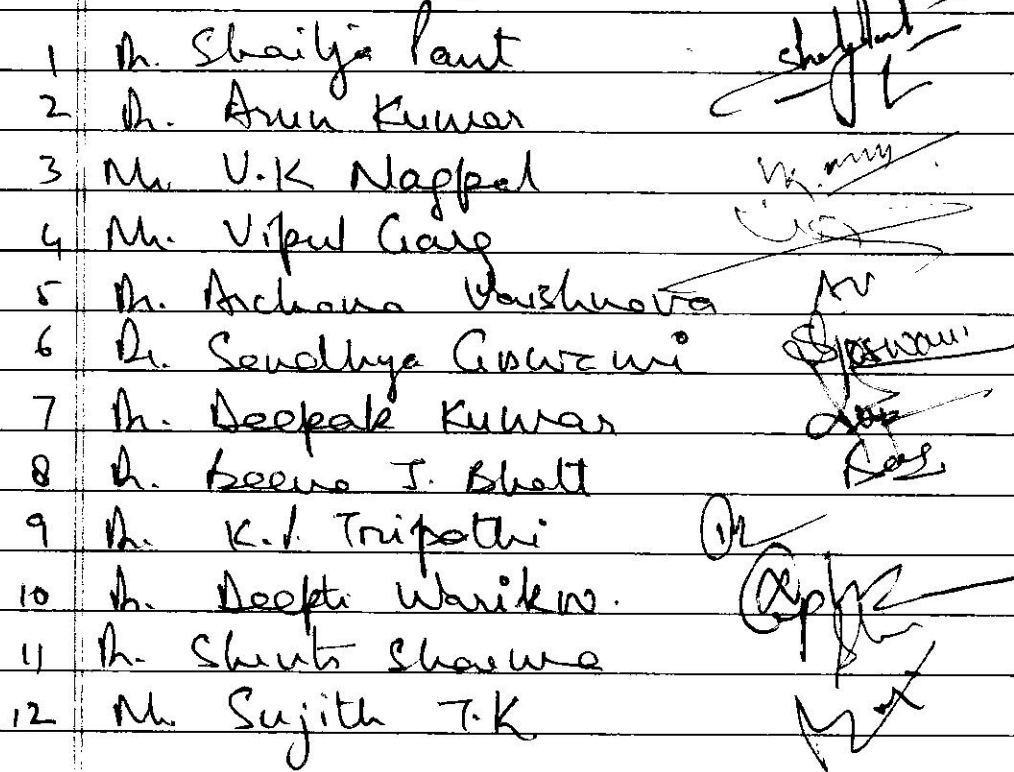 1 Dr. Shailja Pant
2 Dr. Arun Kumar
3 Mr. V.K Nagpal
4 Mr. Vipul Garg
5 Dr. Archana Vaishnava AV
6 Dr. Sandhya Goswami Sgoswami
7 Dr. Deepak Kumar
8 Dr. Beena J. Bhatt
9 Dr. Tripathi
10 Dr. Deepti Warikoo.
11 Dr. Sharma
12 Mr. Sujith T.K